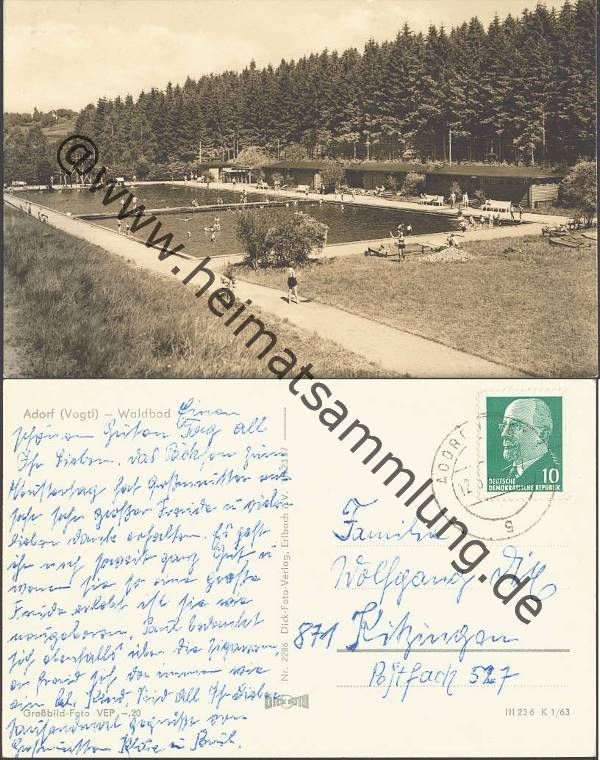 © www.heimatsammlung.de
Adorf (Vogtl) – Waldbad
Einen
schönen Guten Tag all
Ihr Lieben. das Böxchen zum
Muttertag hat Großmutter mit
sehr sehr großer Freude u vielen
lieben danke erhalten. Es geht
ihr noch soweit ganz Gut u
wenn sie so eine große
Freude erlebt ist sie wie
neugeboren. Paul bedankt
sich ebenfalls über die Zigarren
er freud sich da immer wie
ein kl. Kind. Seid all Ihr Lieben
tausendmal gegrüßt von
Großmutter Kläre u Paul.
Großbild-Foto VEP –,20
Nr. 2286 Dick-Foto-Verlag, Erlbach i. V.
DICK FOTO
ADORF
12.5
g
10
DEUTSCHE
DEMOKRATISCHE REPUBLIK
Familie
Wolfgang
871 Kitzingen
Postfach 527
III 23 6 K 1/63